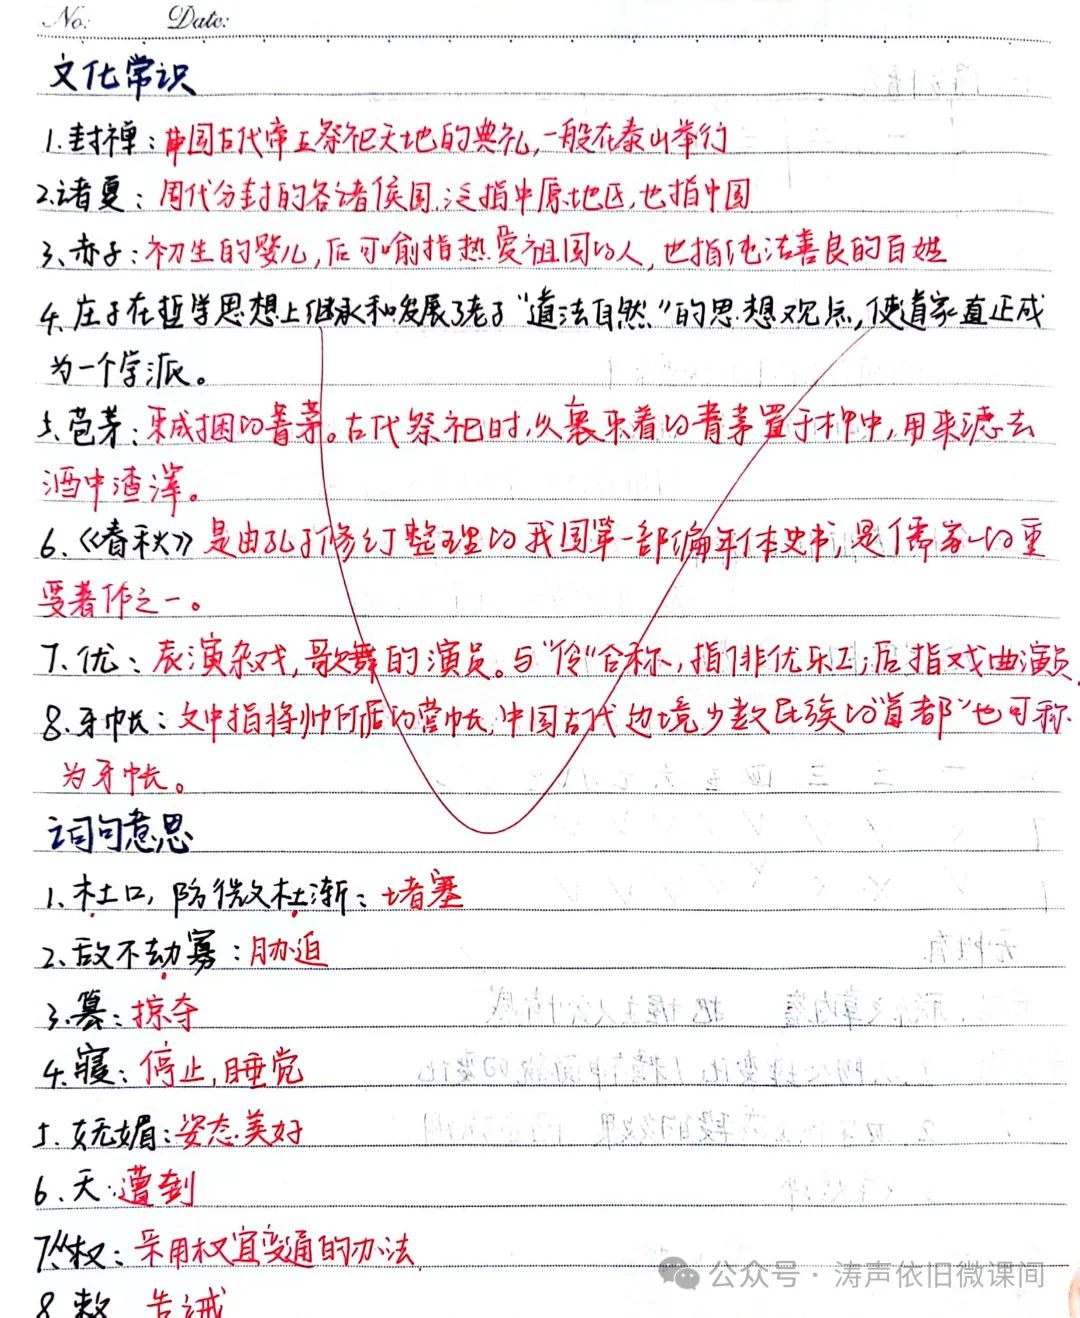 No:    Date:
文化常识
1.封禅：中国古代帝王祭祀天地的典礼，一般在泰山举行
2.诸夏：周代分封的各诸侯国，泛指中原地区，也指中国
3.赤子：初生的婴儿，后可喻指热爱祖国的人，也指纯洁善良的百姓
4.庄子在哲学思想上继承和发展了老子“道法自然”的思想观点，使道家真正成
为一个学派。
5.苞茅：束成捆的菁茅。古代祭祀时，以裹束着的菁茅置于柙中，用来滤去
酒中渣滓。
6.《春秋》是由孔子修订整理的我国第一部编年体史书，是儒家的重
要著作之一。
7.优：表演杂戏，歌舞的演员。与“伶”合称，指俳优乐工；后指戏曲演员
8.牙帐：文中指将帅所居的营帐，中国古代边境少数民族的“首都”也可称
为牙帐。
词句意思
1.杜口，防微杜渐：堵塞
2.敌不劫寡：胁迫
3.篡：掠夺
4.寝：停止，睡觉
5.妩媚：姿态美好
6.夭：遭到
7.从权：采用权宜变通的办法
8.敕 告诫
公众号·涛声依旧微课间